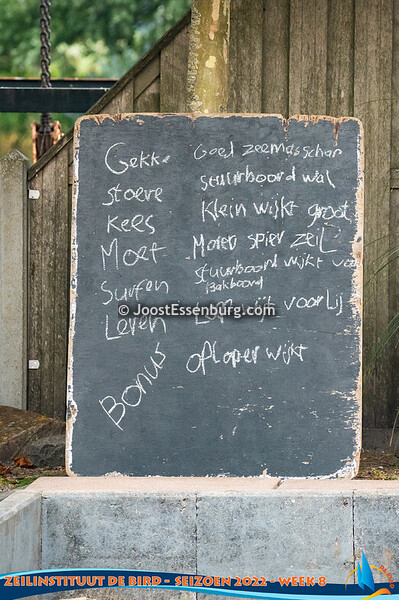 Gekke Goed zeemasschap
stoere stuurboord wal
Kees Klein wijkt groot
Moet Motor spier zeil
Surfen stuurboord wijkt voor Bakboord
Leren Loef wijkt voor Lij
© JoostEssenburg.com
Bonus oploper wijkt
ZEILINSTITUUT DE BIRD - SEIZOEN 2022 - WEEK 8